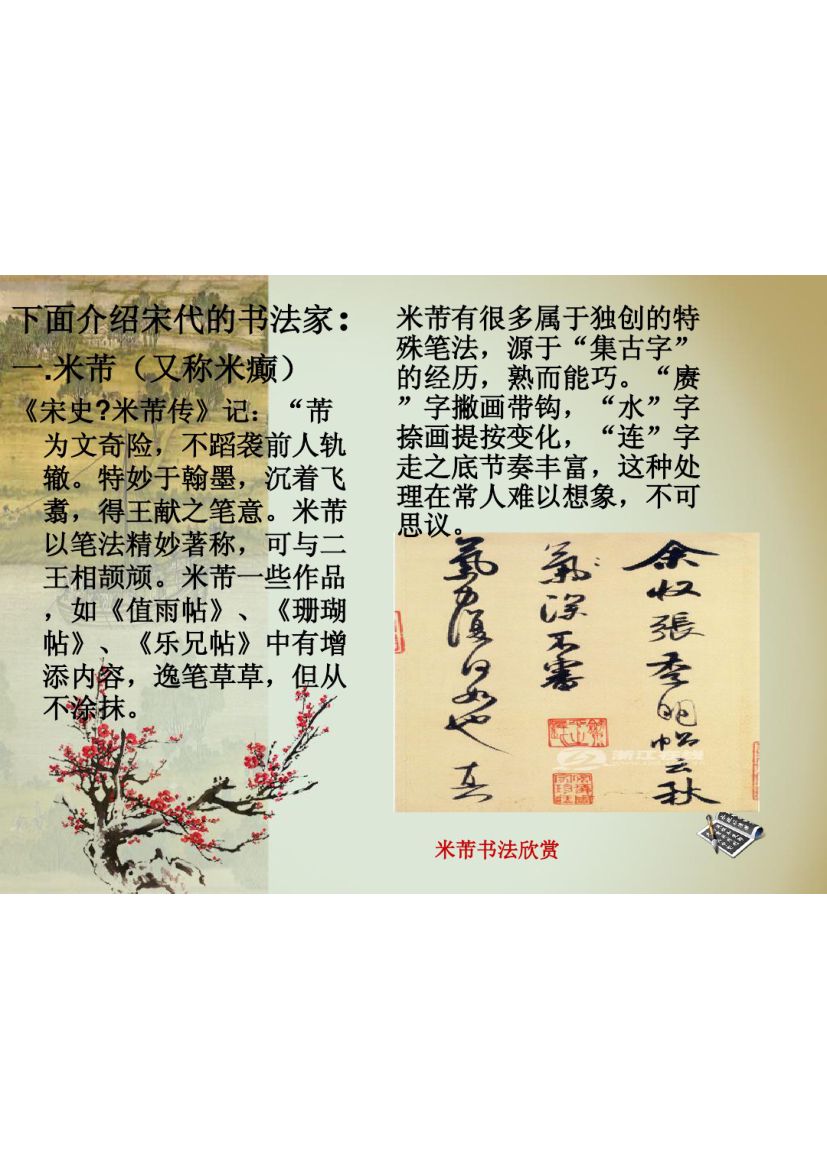 下面介绍宋代的书法家：
一.米芾（又称米癫）
《宋史?米芾传》记：“芾
为文奇险，不蹈袭前人轨
辙。特妙于翰墨，沉着飞
翥，得王献之笔意。米芾
以笔法精妙著称，可与二
王相颉颃。米芾一些作品
，如《值雨帖》、《珊瑚
帖》、《乐兄帖》中有增
添内容，逸笔草草，但从
不涂抹。
米芾有很多属于独创的特
殊笔法，源于“集古字”
的经历，熟而能巧。“赓
”字撇画带钩，“水”字
捺画提按变化，“连”字
走之底节奏丰富，这种处
理在常人难以想象，不可
思议。
余收張季明帖云秋
氣深不審
氣力復何如也真
浙江在线
米芾书法欣赏